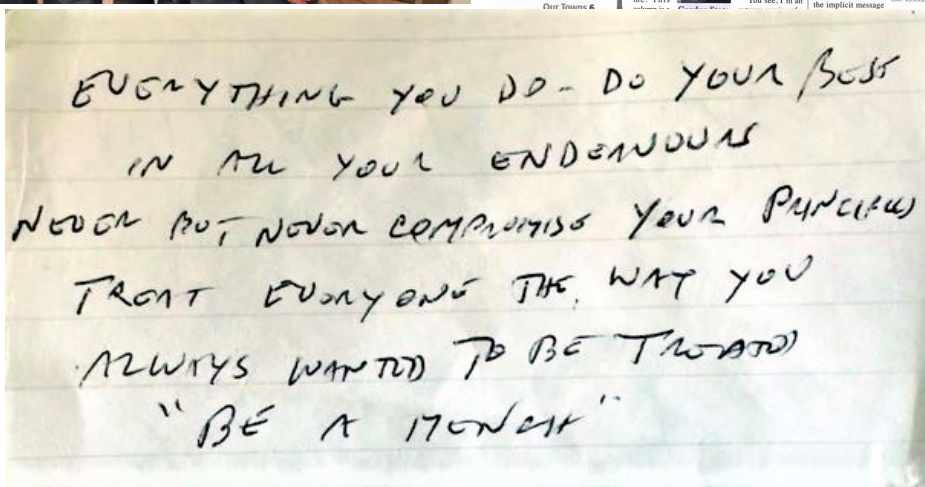 Our Towns 6
You see, I'm an
the implicit message
EVERYTHING YOU DO - DO YOUR BEST
IN ALL YOUR ENDEAVOURS
NEVER BUT NEVER COMPROMISE YOUR PRINCIPLES
TREAT EVERYONE THE WAY YOU
ALWAYS WANTED TO BE TREATED
"BE A MENCH"